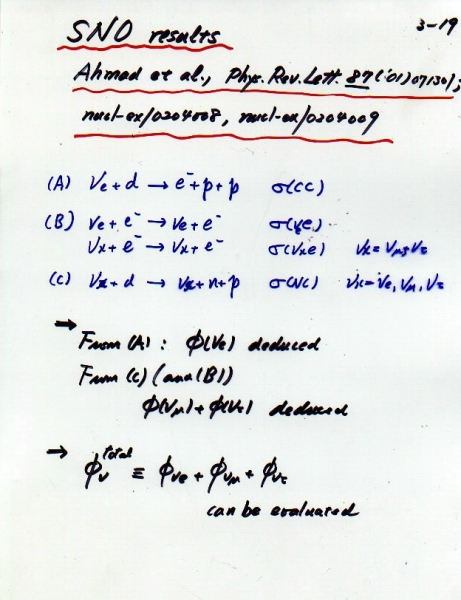 3-19
SNO results
Ahmad et al., Phys. Rev. Lett. 87 ('01) 071301;
nucl-ex/0204008, nucl-ex/0204009
(A) νe + d → e⁻ + p + p σ(CC)
(B) νe + e⁻ → νe + e⁻ σ(νe e)
νx + e⁻ → νx + e⁻ σ(νx e) νx = νμ, ντ
(C) νx + d → νx + n + p σ(NC) νx = νe, νμ, ντ
→
From (A) : φ(νe) deduced
From (C) (and (B))
φ(νμ) + φ(ντ) deduced
→ φν^total ≡ φνe + φνμ + φντ
can be evaluated